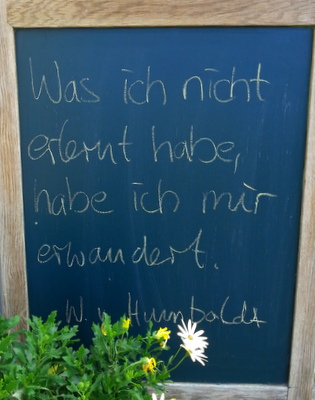 Was ich nicht
erlernt habe,
habe ich mir
erwandert.
W. v Humboldt